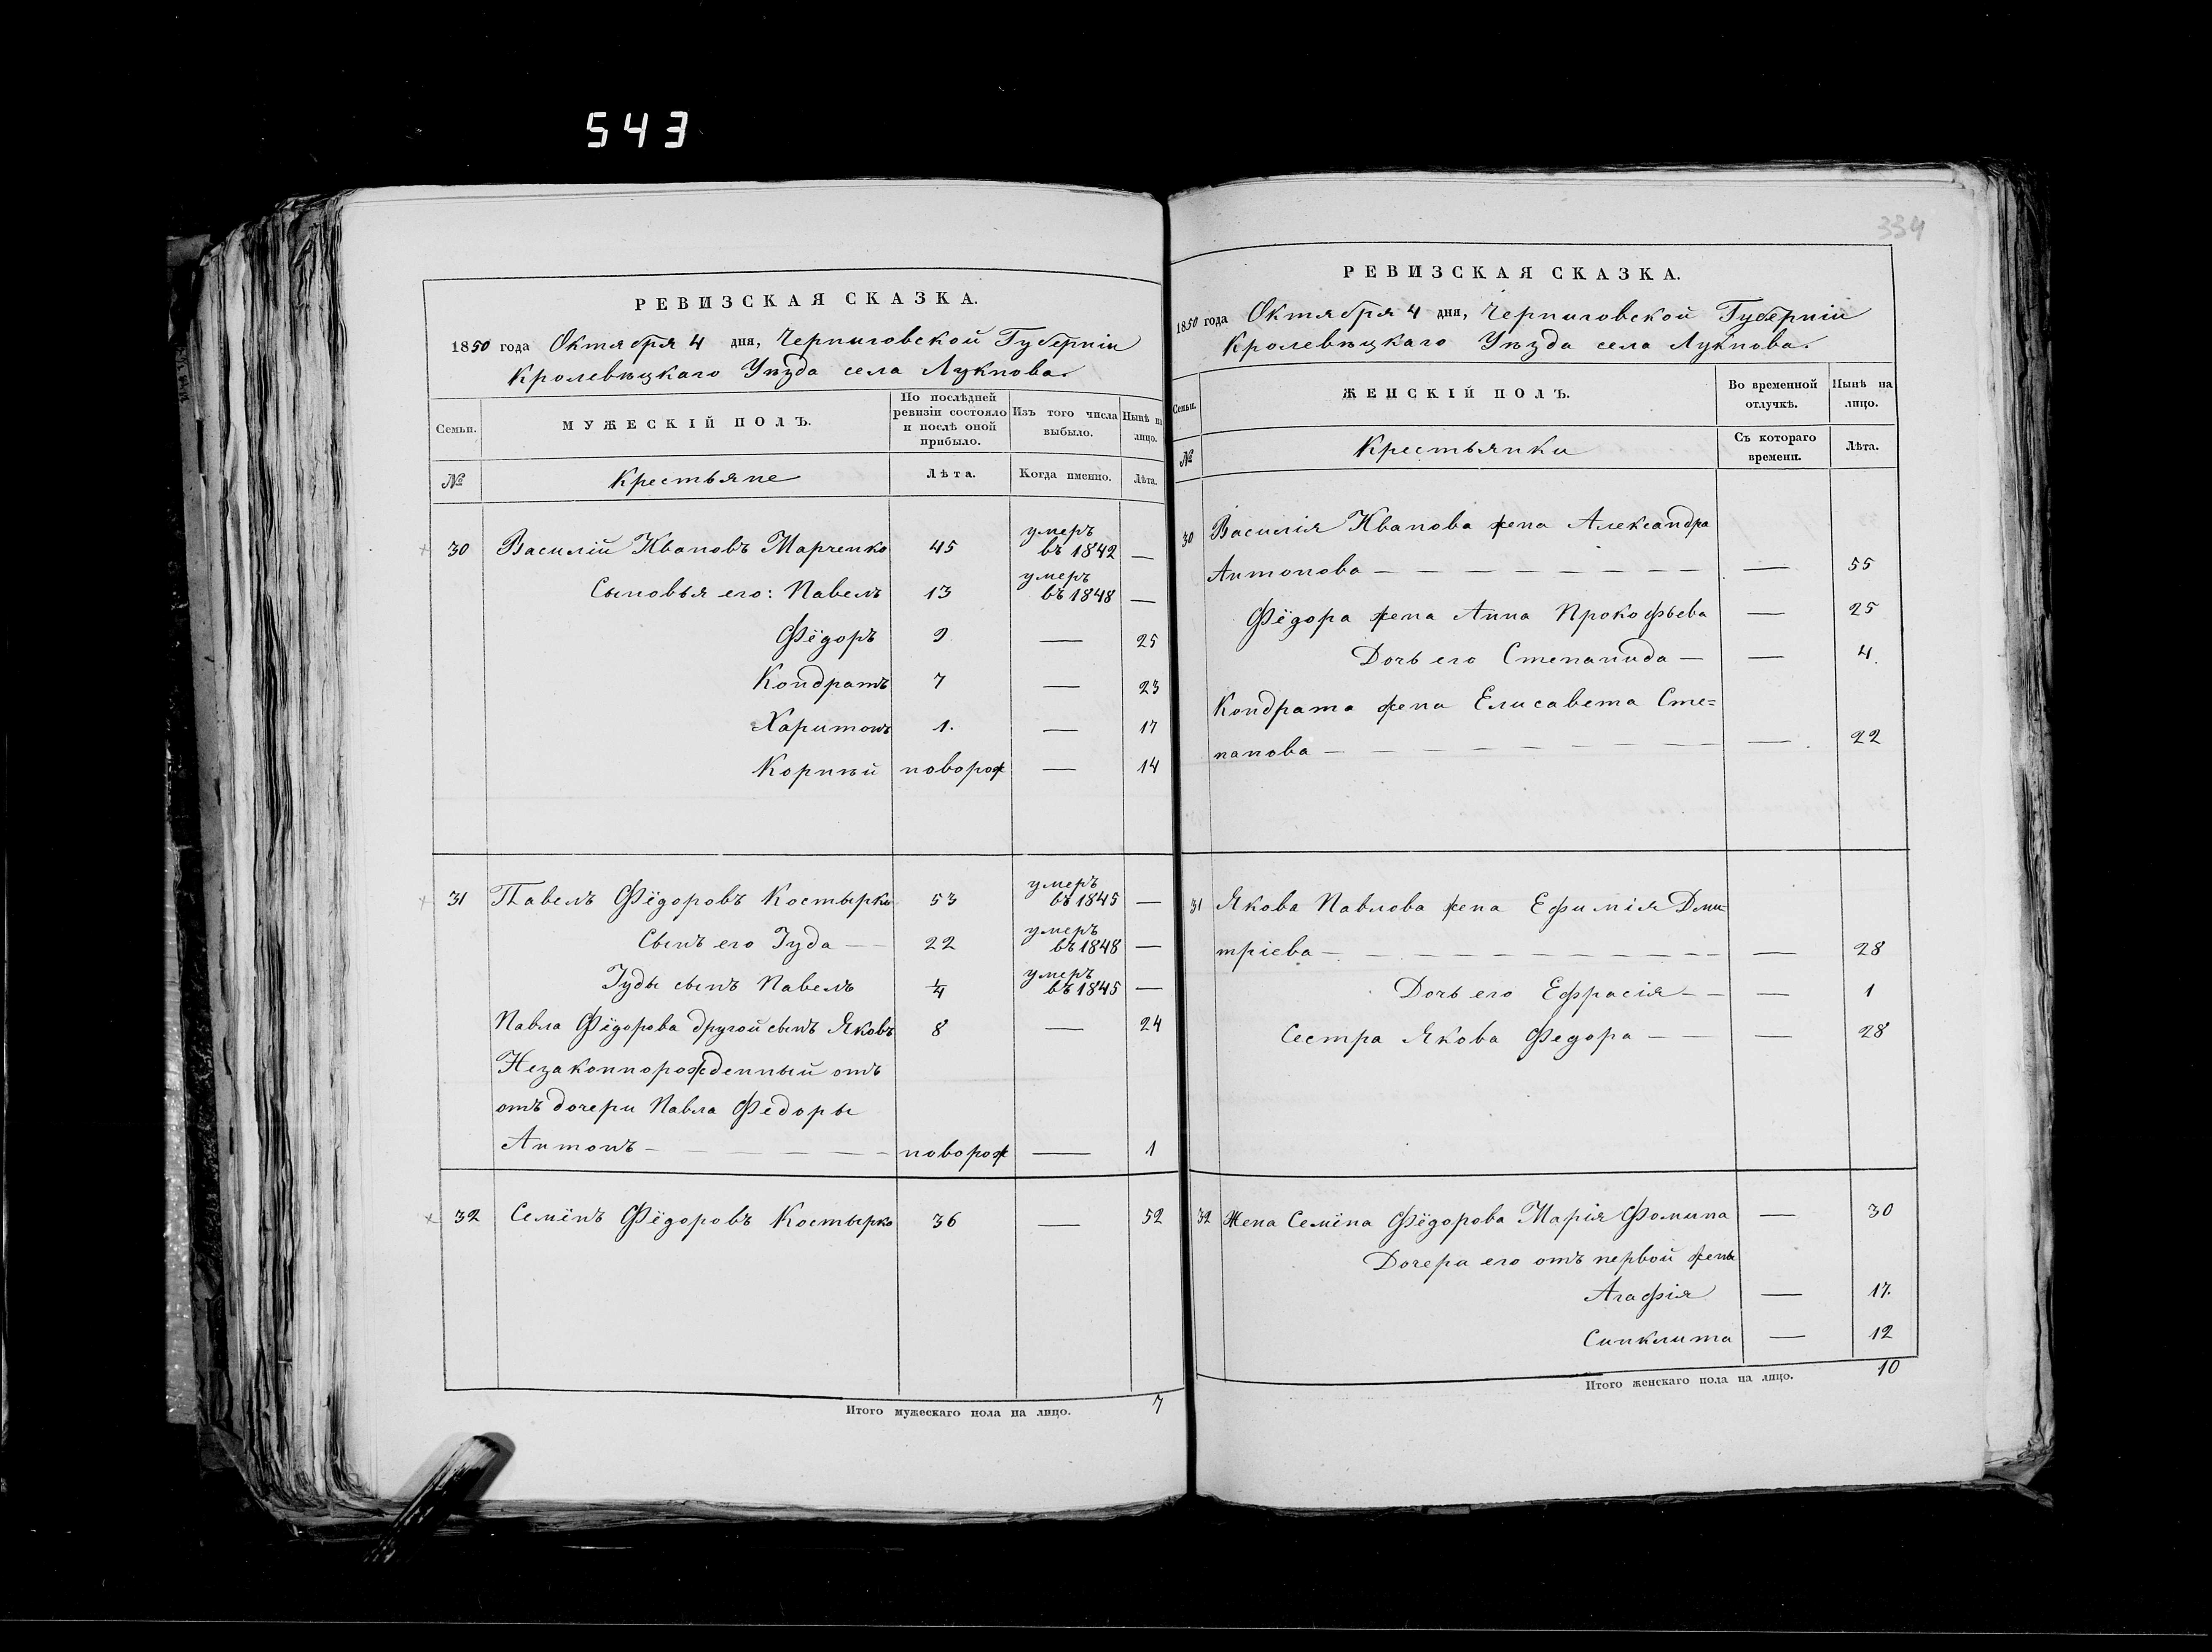 543
РЕВИЗСКАЯ СКАЗКА.
1850 года Октября 4 дня, Черниговской Губерніи
Кролевѣцкаго Уѣзда села Лукнова.
Семьи.
МУЖЕСКІЙ ПОЛЪ.
По послѣдней ревизіи состояло и послѣ оной прибыло.
Изъ того числа выбыло.
Нынѣ на лицо.
№ Крестьяне Лѣта. Когда именно. Лѣта.
30 Василій Ивановъ Марченко 45 умеръ въ 1842 —
Сыновья его: Павелъ 13 умеръ въ 1848 —
Фёдоръ 9 — 25
Кондратъ 7 — 23
Харитонъ 1. — 17
Корнѣй новорож — 14
31 Павелъ Фёдоровъ Костырко 53 умеръ въ 1845 —
Сынъ его Іуда — 22 умеръ въ 1848 —
Іуды сынъ Павелъ 1/4 умеръ въ 1845 —
Павла Фёдорова другой сынъ Яковъ 8 — 24
Незаконнорожденный отъ
отъ дочери Павла Федоры
Антонъ — новорож — 1
32 Семёнъ Фёдоровъ Костырко 36 — 52
Итого мужескаго пола на лицо. 7
334
РЕВИЗСКАЯ СКАЗКА.
1850 года Октября 4 дня, Черниговской Губерніи
Кролевѣцкаго Уѣзда села Лукнова.
Семьи.
ЖЕНСКІЙ ПОЛЪ.
Во временной отлучкѣ.
Нынѣ на лицо.
№ Крестьянки Съ котораго времени. Лѣта.
30 Василія Иванова жена Александра
Антонова — — 55
Фёдора жена Анна Прокофьева — 25
Дочь его Степанида — — 4.
Кондрата жена Елисавета Сте=
панова — — 22
31 Якова Павлова жена Ефимія Дми=
тріева — — 28
Дочь его Ефрасія — — 1
Сестра Якова Федора — — 28
32 Жена Семёна Фёдорова Марія Фомина — 30
Дочери его отъ первой жены
Агафія — 17.
Синклита — 12
Итого женскаго пола на лицо. 10